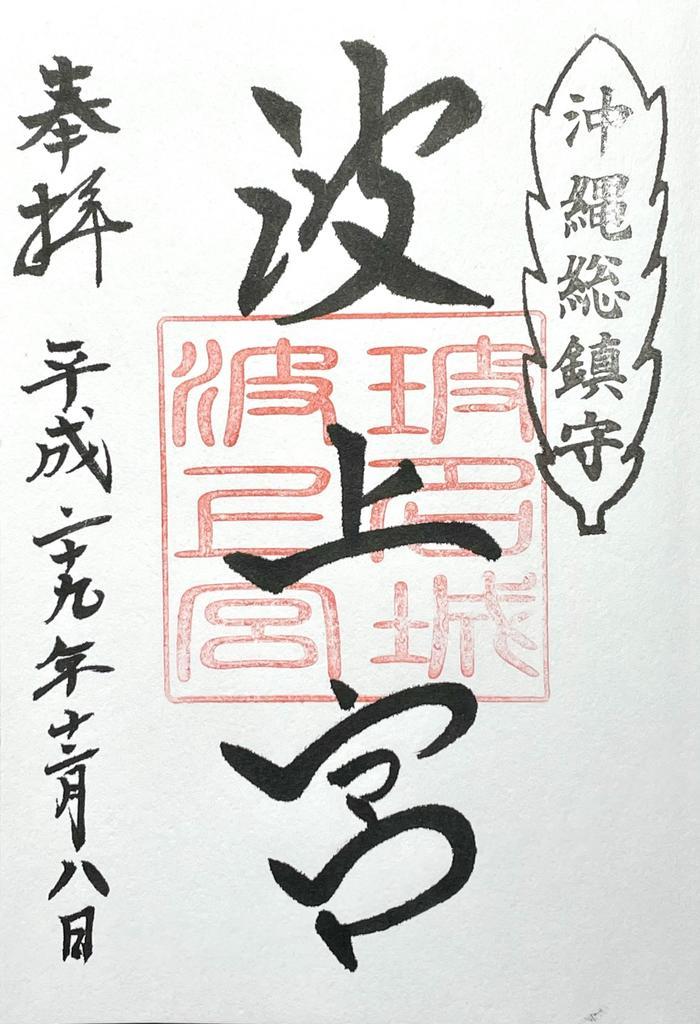 沖縄総鎮守
波上宮
波上宮
奉拝
平成二十九年十二月八日